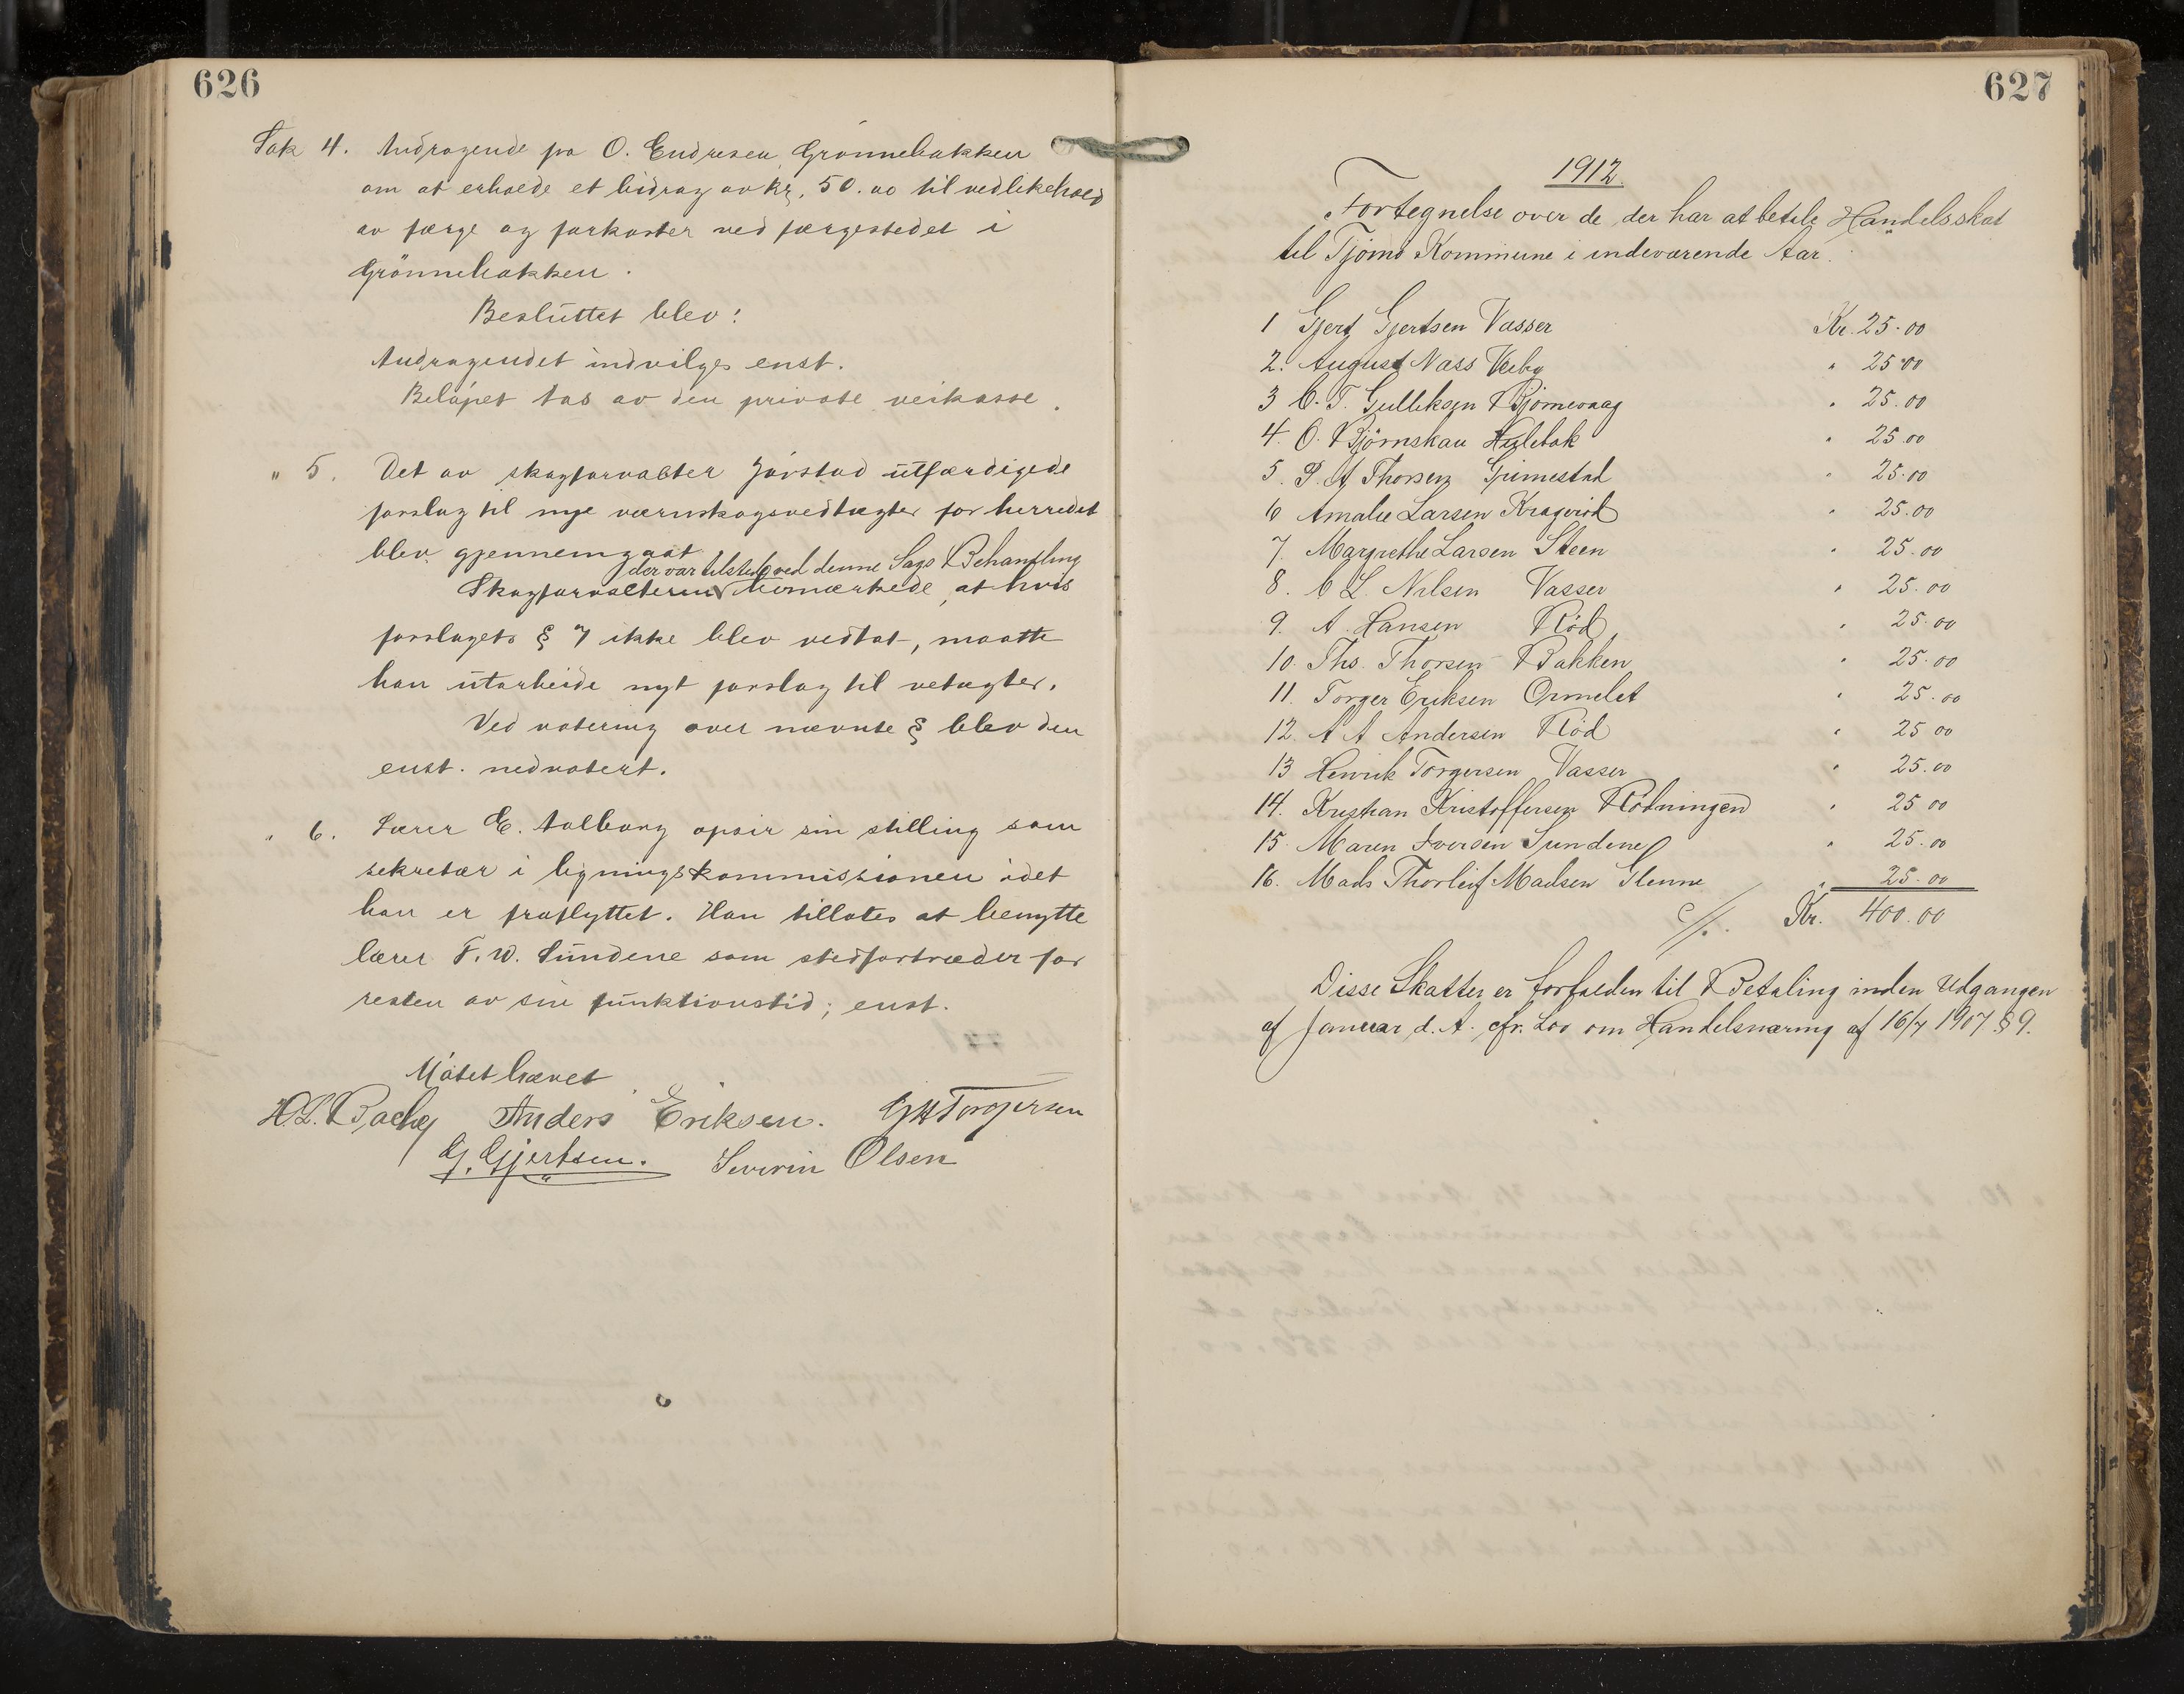 626
Sak 4. Andragende fra O. Endresen, Grønnebakken
om at erholde et bidrag av kr. 50.00 til vedlikehold
av færge og farkoster ved færgestedet i
Grønnebakken.
Besluttet blev:
Andragendet indvilges enst.
Beløpet tas av den private veikasse.
" 5. Det av skogforvalter Jørstad utfærdigede
forslag til nye vernskogsvedtægter for herredet
blev gjennemgaat
der var tilstede ved denne Sags Behandling
Skogforvalteren bemærkede, at hvis
forslagets § 7 ikke blev vedtat, maatte
han utarbeide nyt forslag til vetægter.
Ved votering over nævnte § blev den
enst. nedvotert.
" 6. Lærer E. Aalborg opsir sin stilling som
sekretær i ligningskommissionen idet
han er fraflyttet. Han tillates at benytte
lærer F. W. Sundene som stedfortræder for
resten av sin funktionstid; enst.
Møtet hævet
H.L. Bache Anders Eriksen. GH Torgersen
G. Gjertsen. Severin Olsen
627
1912.
Fortegnelse over de, der har at betale Handelsskat
til Tjømø Kommune i indeværende Aar.
1 Gjert Gjertsen Vasser Kr. 25.00
2. August Næss Veeby " 25.00
3 C. T. Gulliksen Bjørnevaag " 25.00
4. O. Bjørnskau Hulebak " 25.00
5. P. A Thorsen Grimestad " 25.00
6 Amalie Larsen Kragerød " 25.00
7. Margrethe Larsen Steen " 25.00
8. C L. Nilsen Vasser " 25.00
9. A. Hansen Rød " 25.00
10. Ths. Thorsen Bakken " 25.00
11. Torger Eriksen Ormelet " 25.00
12. A A Andersen Rød " 25 00
13 Henrik Torgersen Vasser " 25.00
14. Kristian Kristoffersen Rødningen " 25 00
15. Maren Iversen Sundene " 25.00
16. Mads Thorleif Madsen Glenne " 25.00
Kr. 400.00
Disse Skatter er forfalden til Betaling inden Udgangen
af Januar d. A. cfr. Lov om Handelsnæring af 16/7 1907 § 9.